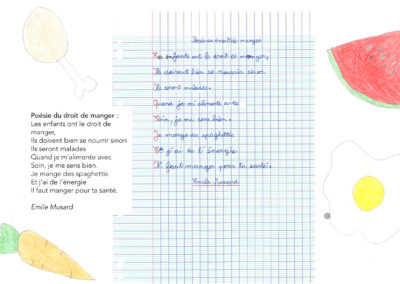 Poésie du droit de manger :
Les enfants ont le droit de
manger,
Ils doivent bien se nourrir sinon
Ils seront malades
Quand je m'alimente avec
Soin, je me sens bien.
Je mange des spaghettis
Et j'ai de l'énergie
Il faut manger pour ta santé.
Emile Musard
Poésie du droit de manger
Les enfants ont le droit de manger,
Ils doivent bien se nourrir sinon
Ils seront malades.
Quand je m'alimente avec
Soin, je me sens bien.
Je mange des spaghettis
Et j'ai de l'énergie
Il faut manger pour ta santé.
Emile Musard